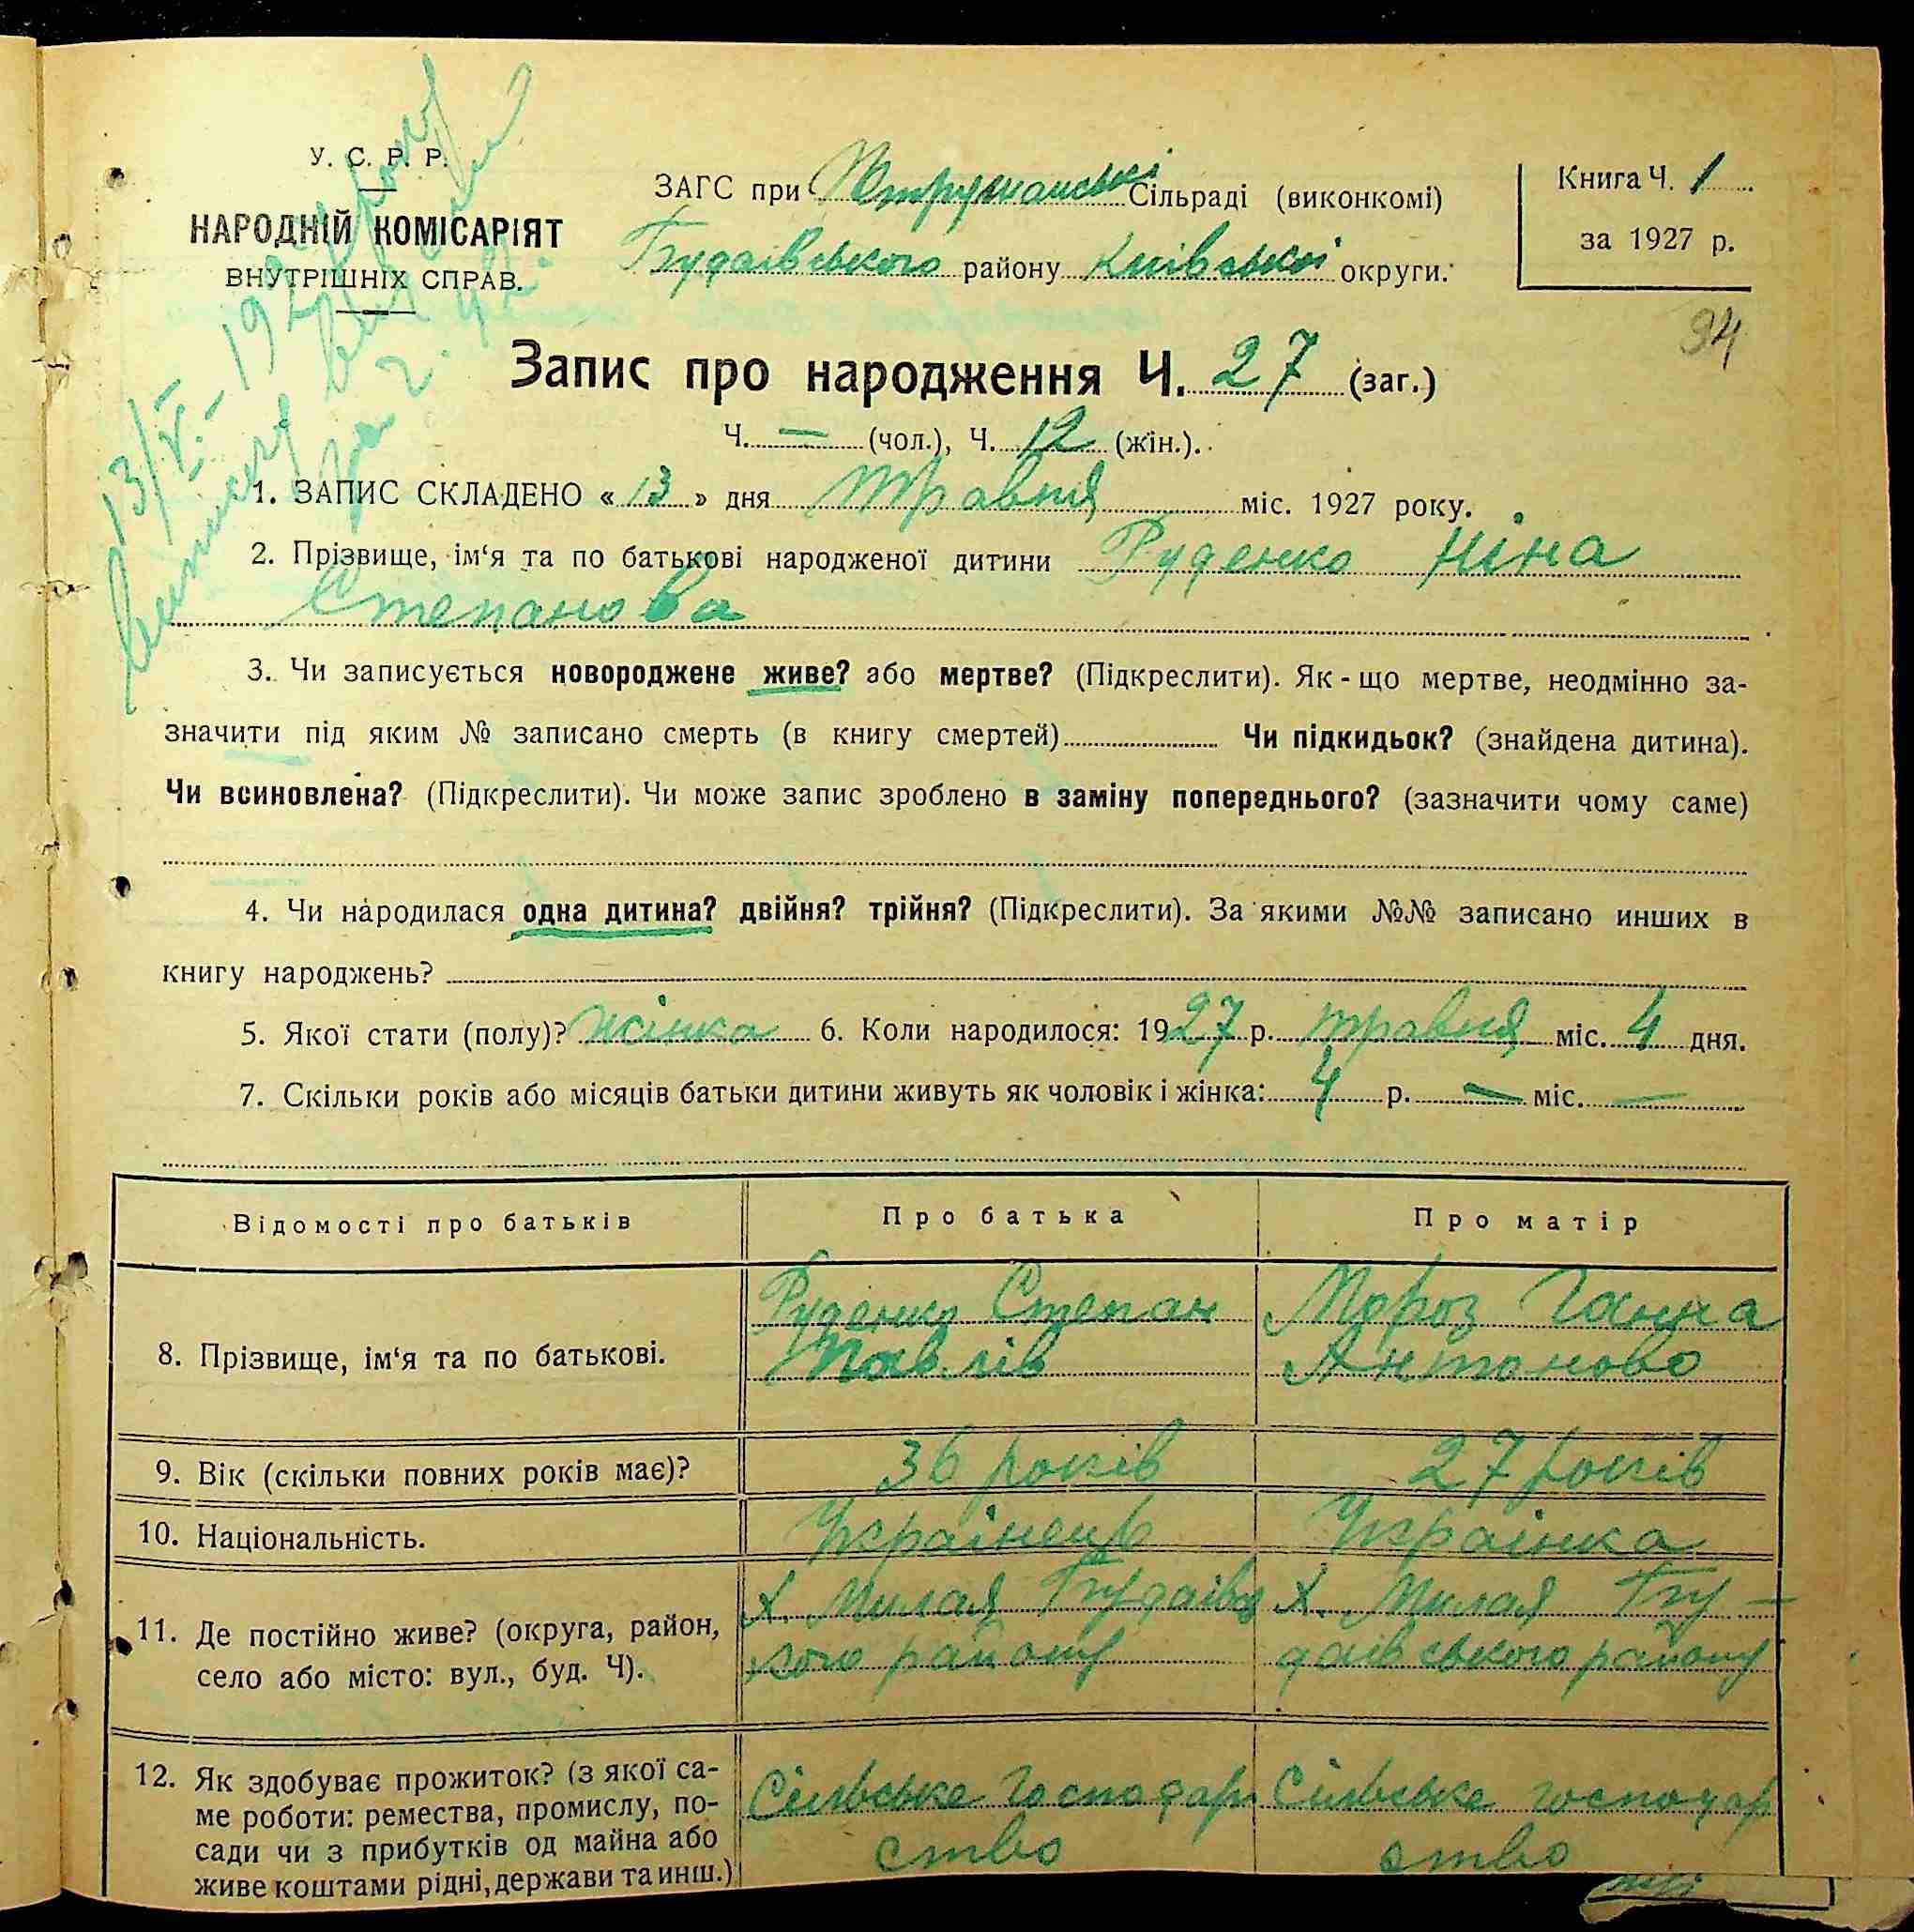 У. С. Р. Р.
НАРОДНІЙ КОМІСАРІЯТ
ВНУТРІШНІХ СПРАВ.
ЗАГС при Сільраді (виконкомі)
Будаівського району Київськоі округи.
Книга Ч. 1
за 1927 р.
94
Запис про народження Ч. 27 (заг.)
Ч. — (чол.), Ч. 12 (жін.).
13/V - 192
1. ЗАПИС СКЛАДЕНО « 13 » дня травня міс. 1927 року.
2. Прізвище, ім‘я та по батькові народженої дитини Руденко Ніна
Степанова
3. Чи записується новороджене живе? або мертве? (Підкреслити). Як-що мертве, неодмінно за-
значити під яким № записано смерть (в книгу смертей) Чи підкидьок? (знайдена дитина).
Чи всиновлена? (Підкреслити). Чи може запис зроблено в заміну попереднього? (зазначити чому саме)
4. Чи народилася одна дитина? двійня? трійня? (Підкреслити). За якими №№ записано инших в
книгу народжень?
5. Якої стати (полу)? жінка 6. Коли народилося: 1927 р. травня міс. 4 дня.
7. Скільки років або місяців батьки дитини живуть як чоловік і жінка: 4 р. — міс. —
Відомості про батьків Про батька Про матір
8. Прізвище, ім‘я та по батькові.
Руденко Степан
Павлів
Мороз Ганна
Антоново
9. Вік (скільки повних років має)? 36 років 27 років
10. Національність. Українець Украінка
11. Де постійно живе? (округа, район,
село або місто: вул., буд. Ч).
Х. Милая Будаівсь
кого району
Х. Милая Бу-
даівського району
12. Як здобуває прожиток? (з якої са-
ме роботи: ремества, промислу, по-
сади чи з прибутків од майна або
живе коштами рідні, держави та инш.)
Сільське господар
ство
Сільське господар
ство